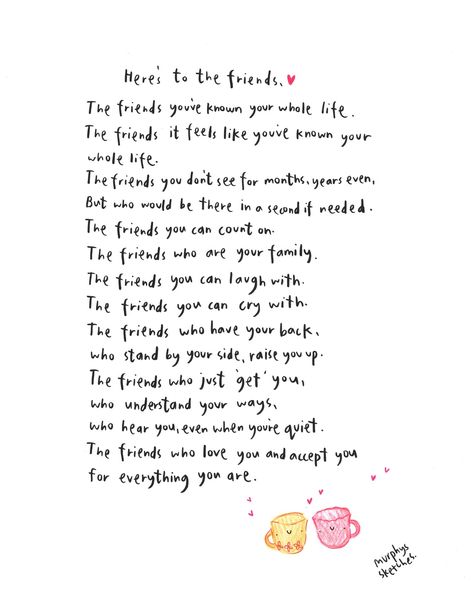 Here's to the friends.
The friends you've known your whole life.
The friends it feels like you've known your
whole life.
The friends you don't see for months, years even,
But who would be there in a second if needed.
The friends you can count on.
The friends who are your family.
The friends you can laugh with.
The friends you can cry with.
The friends who have your back,
who stand by your side, raise you up.
The friends who just 'get' you,
who understand your ways,
who hear you, even when you're quiet.
The friends who love you and accept you
for everything you are.
murphys
sketches.